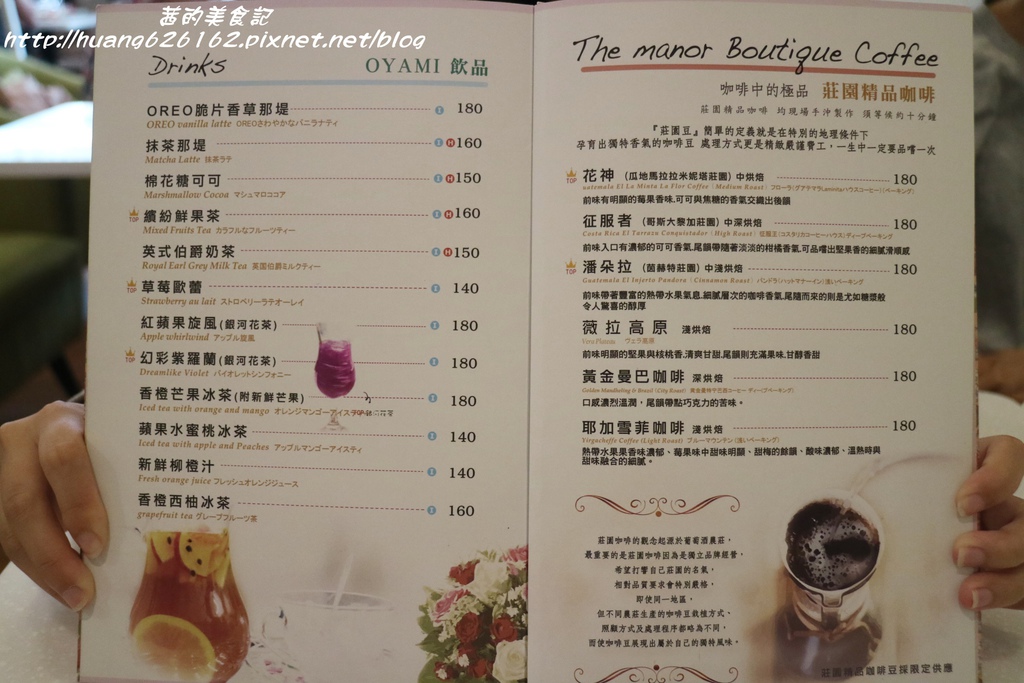 茜的美食記
http://huang626162.pixnet.net/blog
Drinks
OYAMI 飲品
OREO脆片香草那堤 I 180
OREO vanilla latte OREOさわやかなバニラナティ
抹茶那堤 I H 160
Matcha Latte 抹茶ラテ
棉花糖可可 I H 150
Marshmallow Cocoa マシュマロココア
TOP 繽紛鮮果茶 I H 160
Mixed Fruits Tea カラフルなフルーツティー
英式伯爵奶茶 I H 150
Royal Earl Grey Milk Tea 英国伯爵ミルクティー
TOP 草莓歐蕾 I 140
Strawberry au lait ストロベリーラテオーレイ
紅蘋果旋風(銀河花茶) I 180
Apple whirlwind アップル旋風
TOP 幻彩紫羅蘭(銀河花茶) I 180
Dreamlike Violet バイオレットシンフォニー
香橙芒果冰茶(附新鮮芒果) I 180
Iced tea with orange and mango オレンジマンゴーアイスティ
蘋果水蜜桃冰茶 I 140
Iced tea with apple and Peaches アップルマンゴーアイスティ
新鮮柳橙汁 I 140
Fresh orange juice フレッシュオレンジジュース
香橙西柚冰茶 I 160
grapefruit tea グレープフルーツ茶
The manor Boutique Coffee
咖啡中的極品 莊園精品咖啡
莊園精品咖啡 均現場手沖製作 須等候約十分鐘
『莊園豆』簡單的定義就是在特別的地理條件下
孕育出獨特香氣的咖啡豆 處理方式更是精緻嚴謹費工,一生中一定要品嚐一次
TOP 花神 (瓜地馬拉拉米妮塔莊園) 中烘焙 180
uatemala El La Minta La Flor Coffee (Medium Roast)
前味有明顯的莓果香味.可可與焦糖的香氣交織出後韻
征服者 (哥斯大黎加莊園) 中深烘焙 180
Costa Rica El Tarrazu Conquistador (High Roast)
前味入口有濃郁的可可香氣.尾韻帶隨著淡淡的柑橘香氣.可品嚐出堅果香的細膩滑順感
TOP 潘朵拉 (茵赫特莊園) 中淺烘焙 180
Guatemala El Injerto Pandora (Cinnamon Roast)
前味帶著豐富的熱帶水果氣息.細膩層次的咖啡香氣.尾隨而來的則是尤如糖漿般
令人驚喜的醇厚
薇拉高原 淺烘焙 180
Vera Plateau ヴェラ高原
前味明顯的堅果與核桃香.清爽甘甜.尾韻則充滿果味.甘醇香甜
黃金曼巴咖啡 深烘焙 180
Golden Mandheling & Brazil (City Roast)
口感濃烈溫潤,尾韻帶點巧克力的苦味。
耶加雪菲咖啡 淺烘焙 180
Yirgacheffe Coffee (Light Roast) ブルーマウンテン(浅いベーキング)
熱帶水果果香濃郁、莓果味中甜味明顯、甜梅的餘韻、酸味濃郁、溫熱時與
甜味融合的細膩。
莊園咖啡的觀念起源於葡萄酒農莊,
最重要的是莊園咖啡因為是獨立品牌經營,
希望打響自己莊園的名氣,
相對品質要求會特別嚴格,
即使同一地區,
但不同農莊生產的咖啡豆栽植方式,
照顧方式及處理程序都略為不同,
而使咖啡豆展現出屬於自己的獨特風味。
莊園精品咖啡豆採限定供應